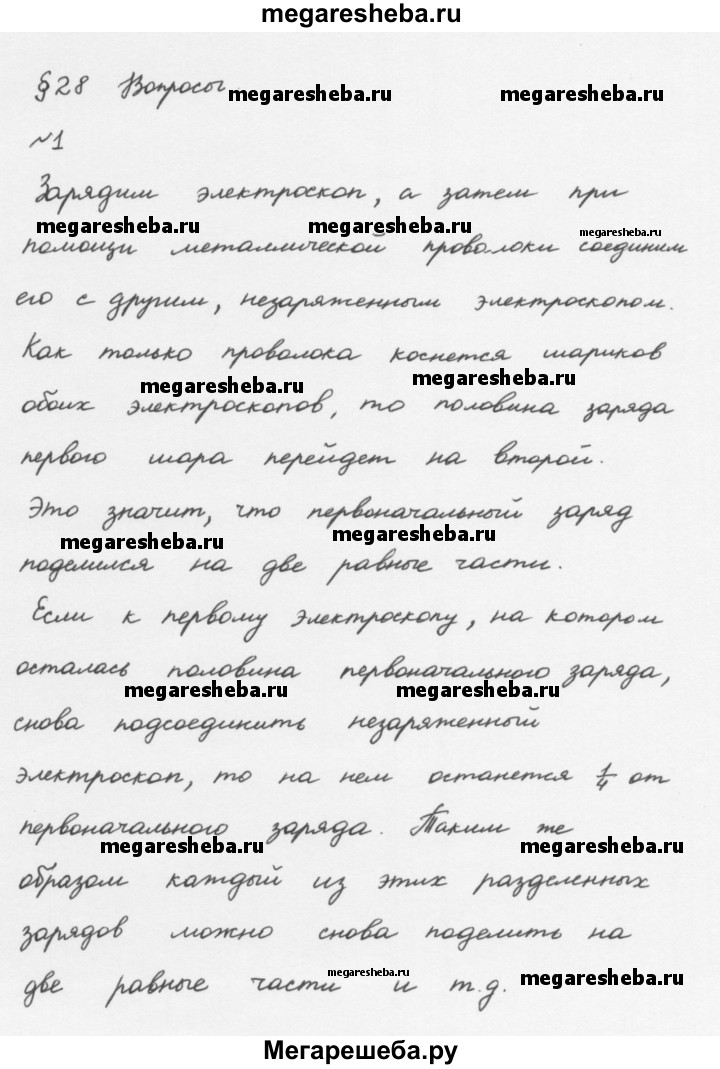 megaresheba.ru
§28 Вопросы
megaresheba.ru megaresheba.ru
№1
Зарядим электроскоп, а затем при
megaresheba.ru megaresheba.ru megaresheba.ru
помощи металлической проволоки соединим
его с другим, незаряженным электроскопом.
Как только проволока коснется шариков
megaresheba.ru megaresheba.ru
обоих электроскопов, то половина заряда
первого шара перейдет на второй.
Это значит, что первоначальный заряд
megaresheba.ru megaresheba.ru
поделился на две равные части.
Если к первому электроскопу, на котором
осталась половина первоначального заряда,
megaresheba.ru megaresheba.ru
снова подсоединить незаряженный
электроскоп, то на нем останется 1/4 от
первоначального заряда. Таким же
megaresheba.ru megaresheba.ru
образом каждый из этих разделенных
зарядов можно снова поделить на
две равные части и т.д.
megaresheba.ru megaresheba.ru
Мегарешеба.ру